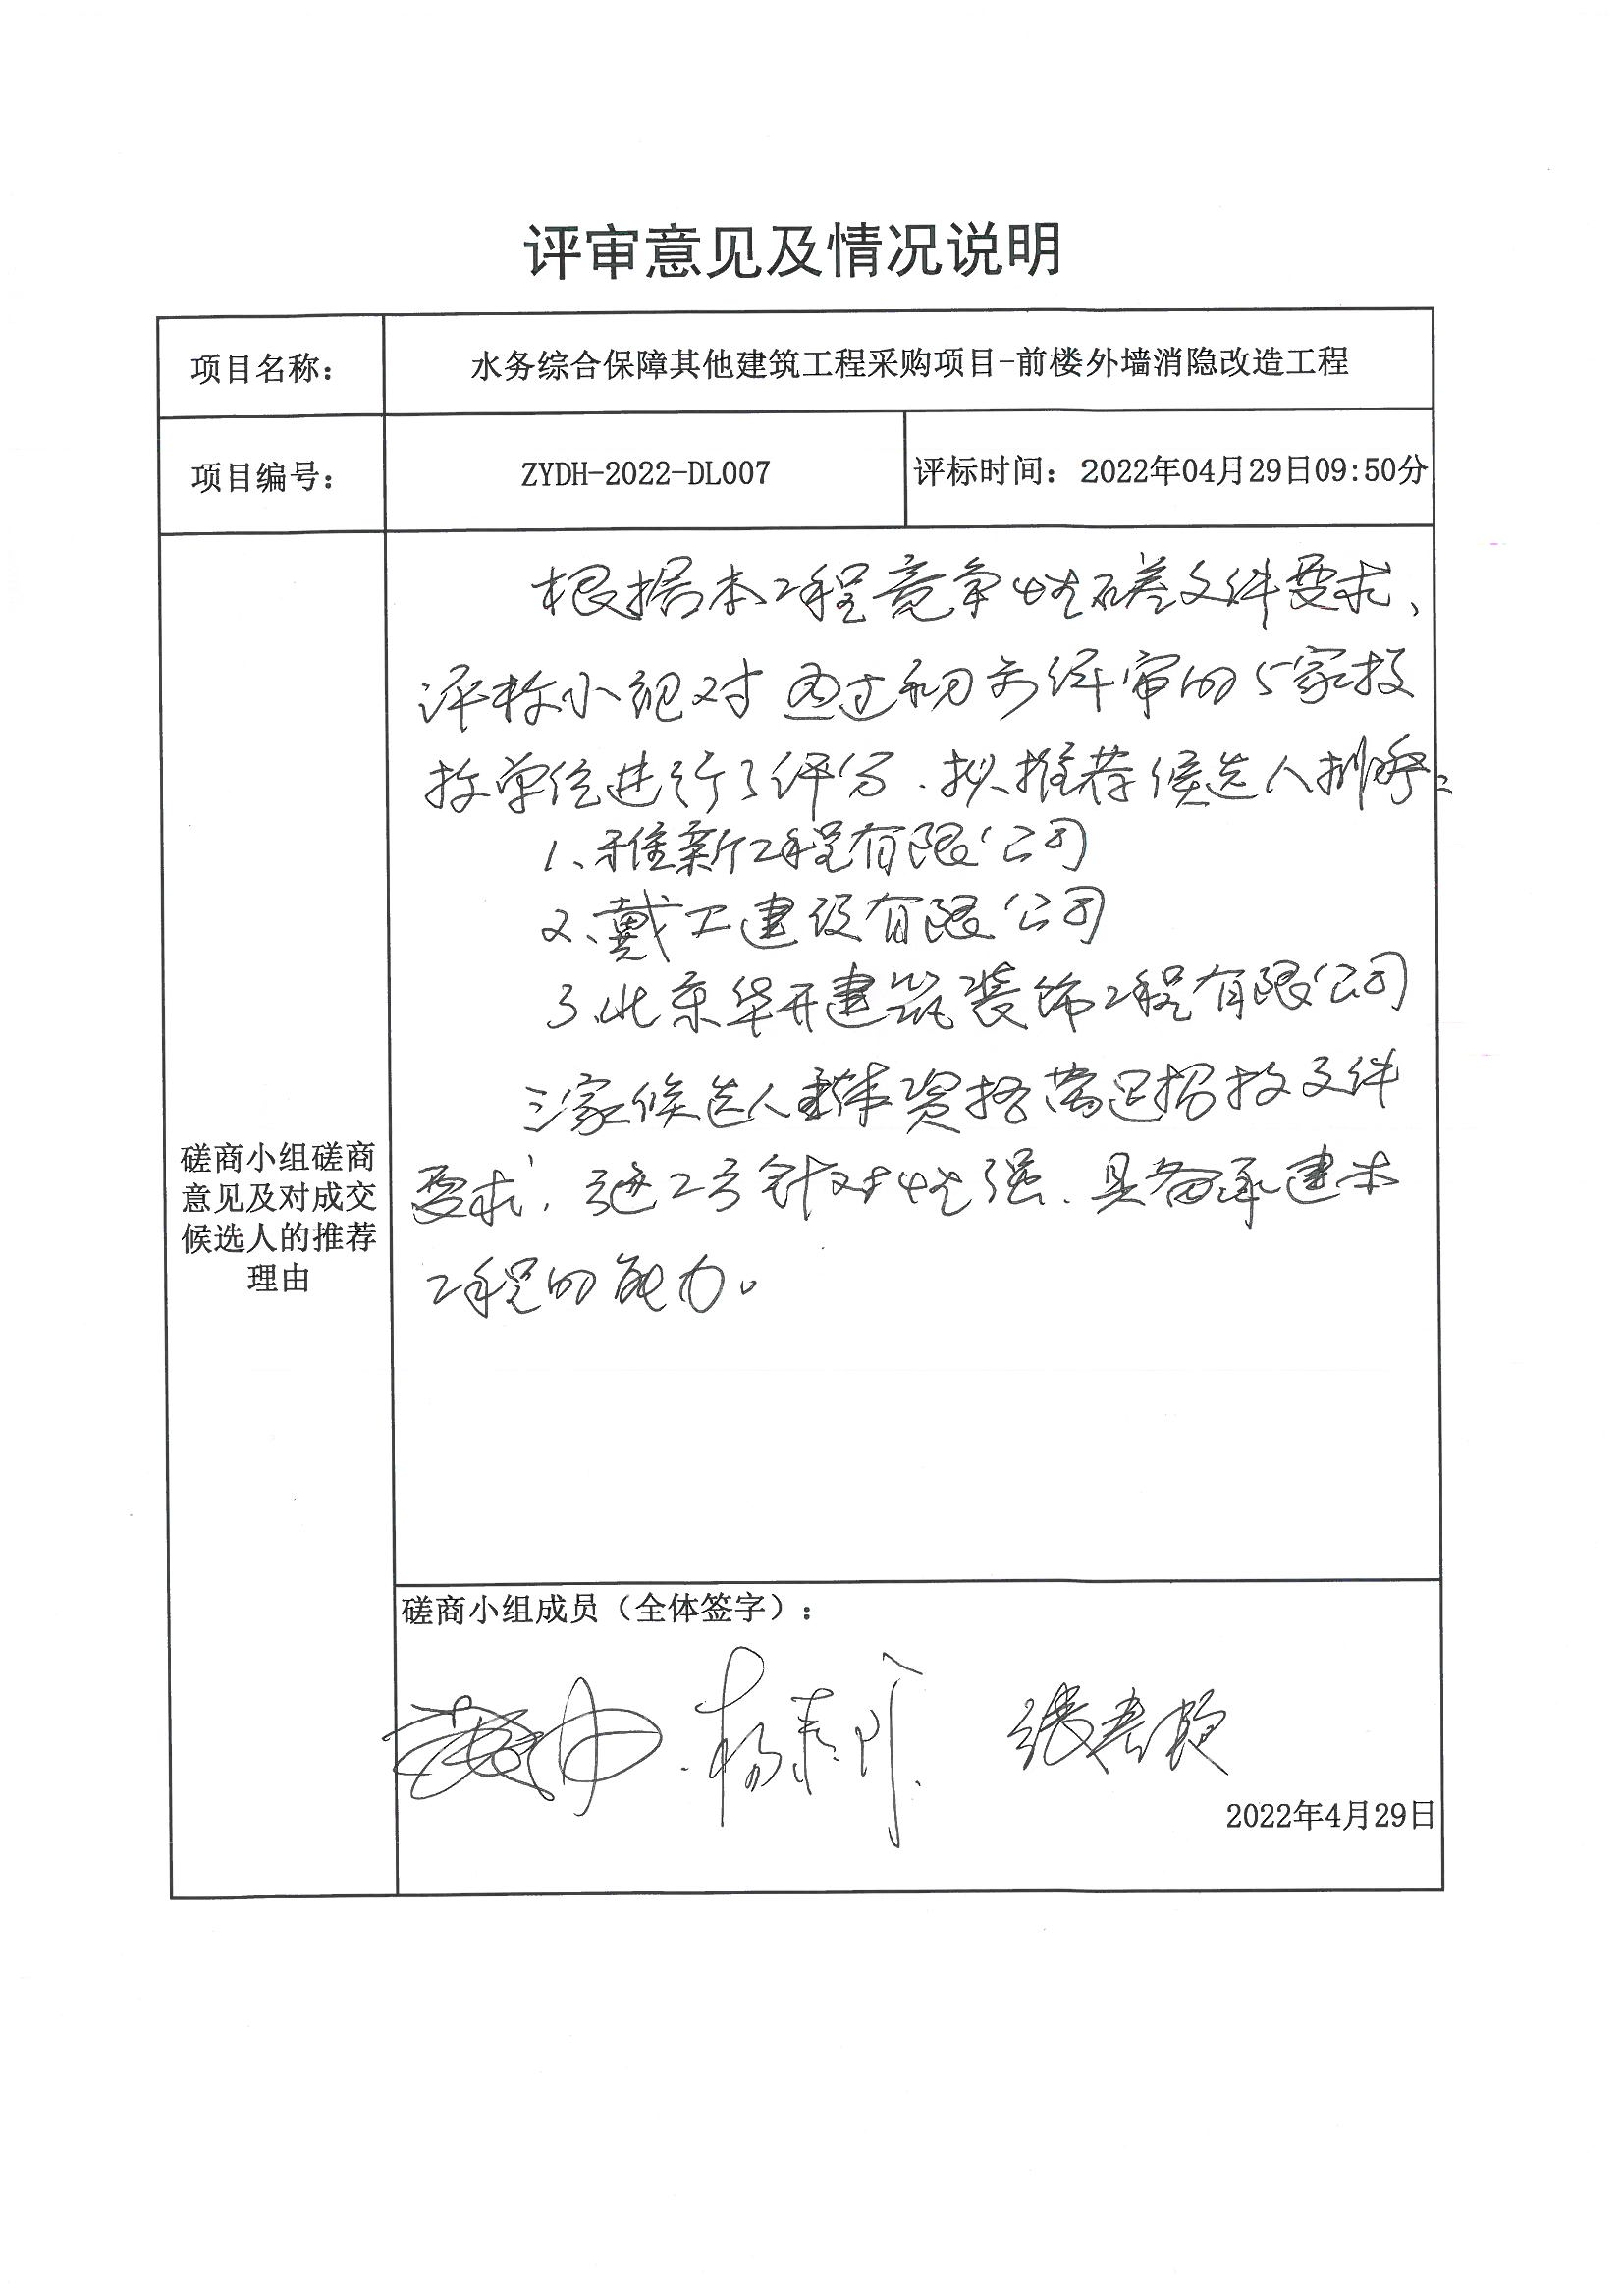 评审意见及情况说明
项目名称：
水务综合保障其他建筑工程采购项目-前楼外墙消隐改造工程
项目编号：
ZYDH-2022-DL007
评标时间：2022年04月29日09:50分
磋商小组磋商
意见及对成交
候选人的推荐
理由
根据本工程竞争性磋文件要求、
评标小组对通过初步评审的5家投
标单位进行了评分.拟推荐候选人排序：
1、雅新工程有限公司
2、戴工建设有限公司
3、北京华开建筑装饰工程有限公司
三家候选人主体资格满足招投文件
要求，施工方针对性强、具备承建本
工程的能力。
磋商小组成员（全体签字）：
2022年4月29日